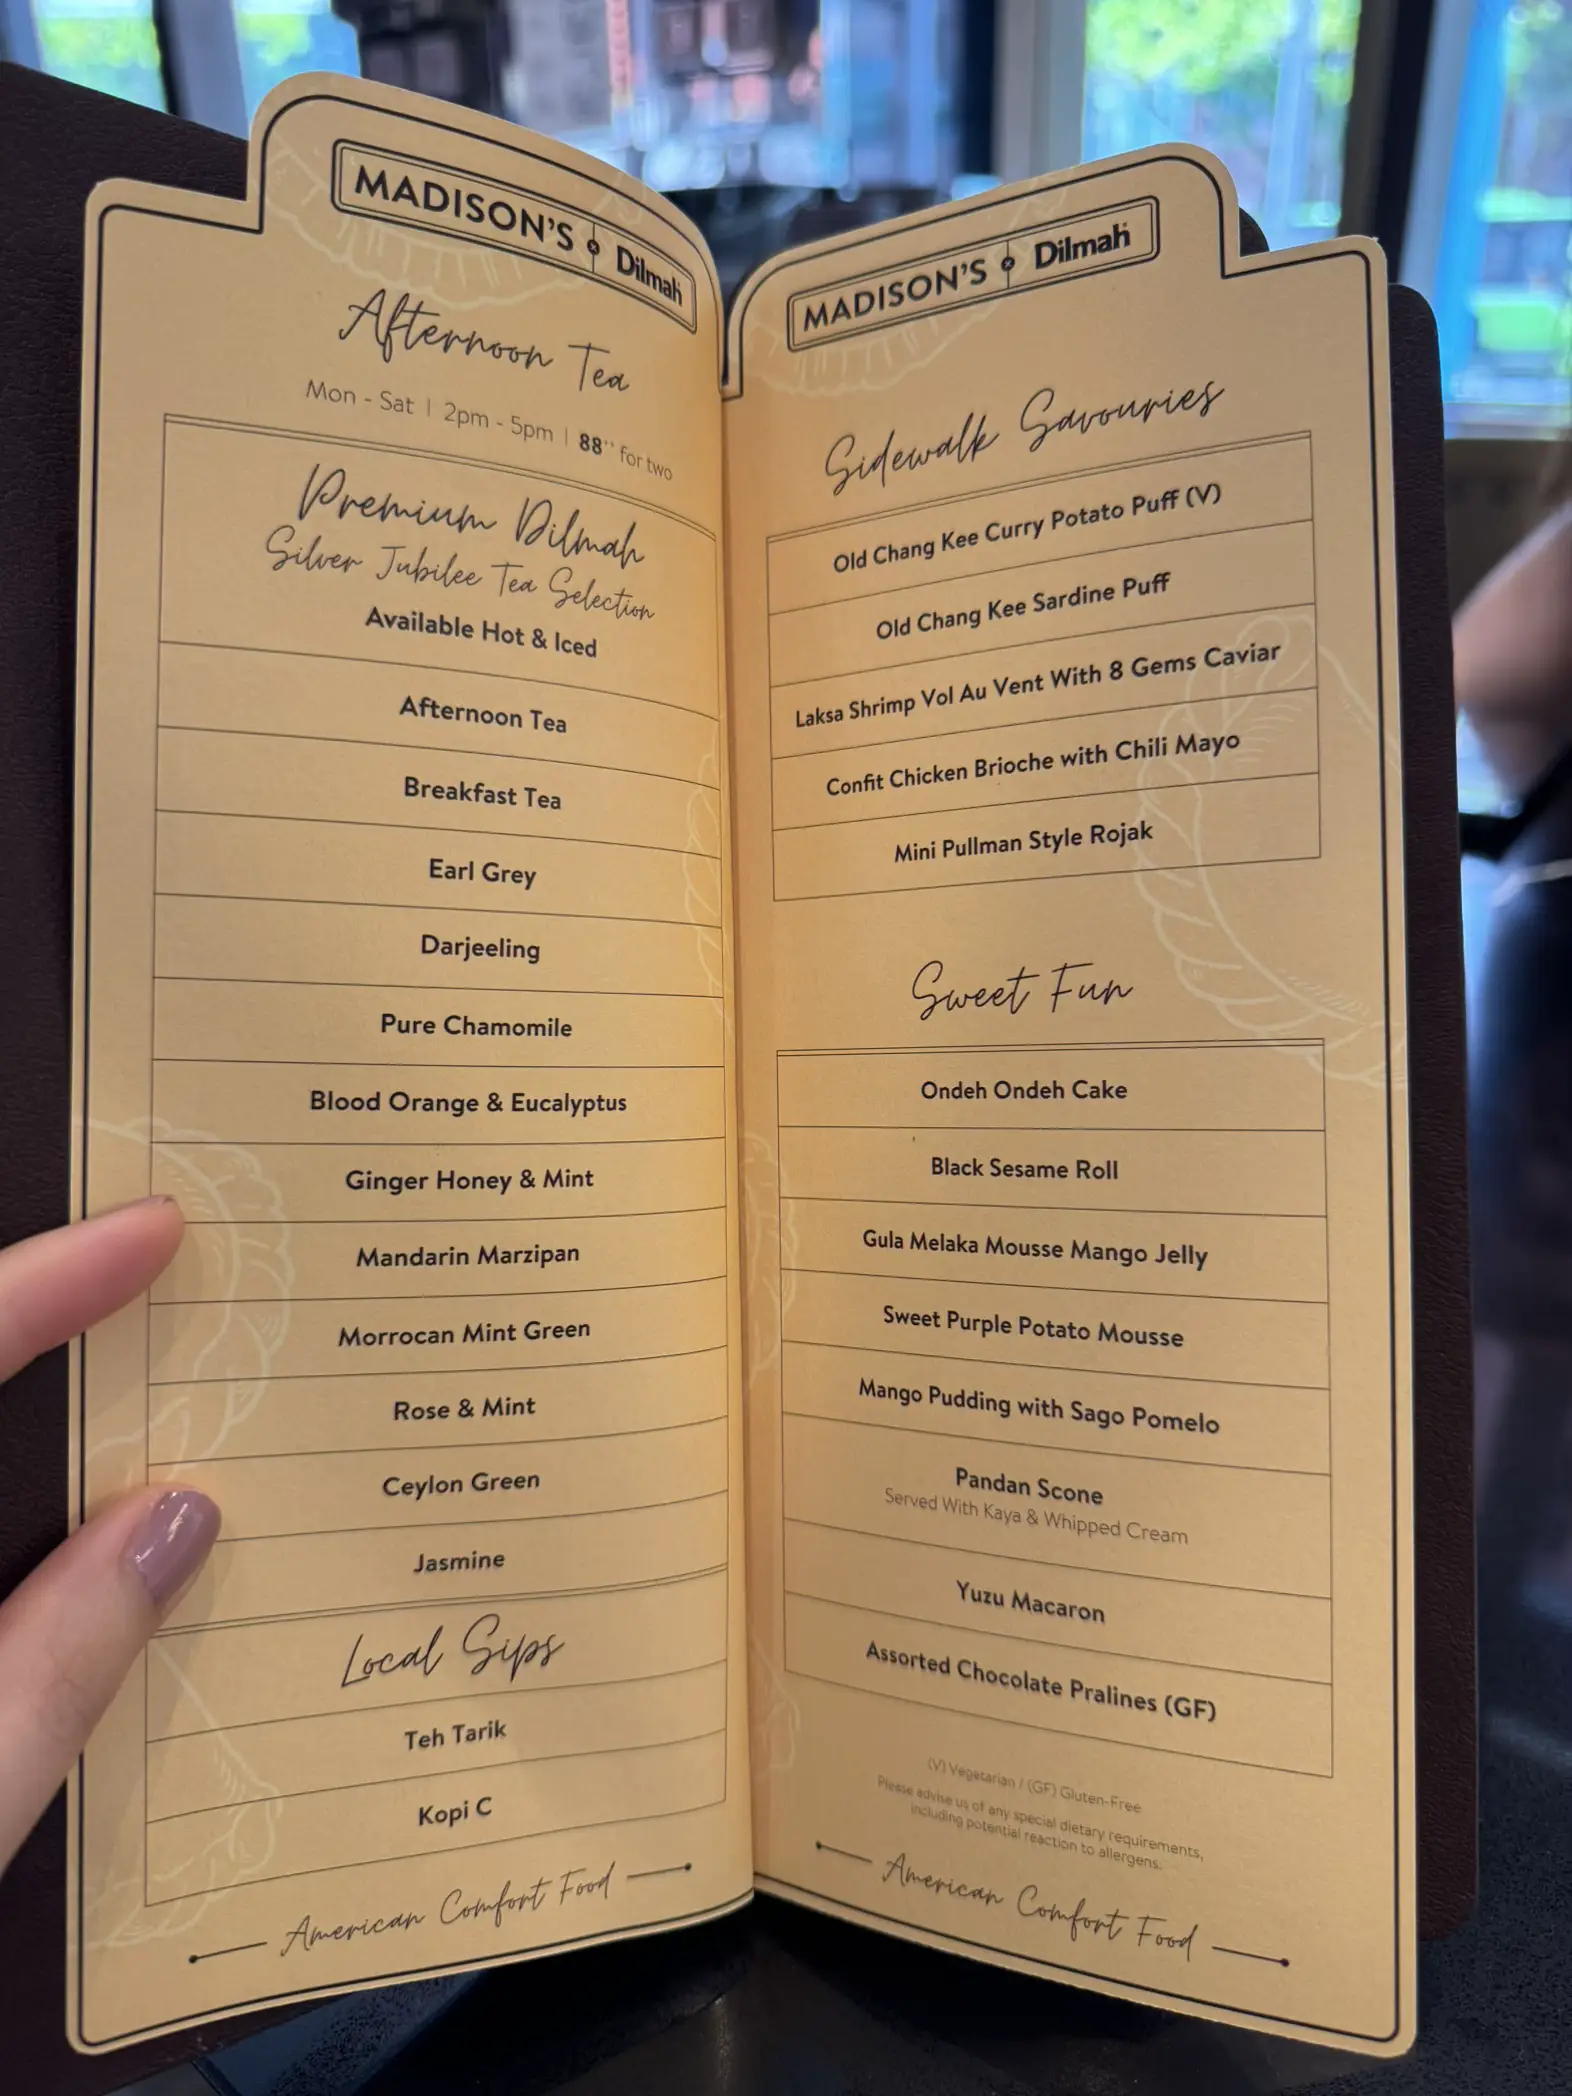 MADISON'S x Dilmah
Afternoon Tea
Mon - Sat | 2pm - 5pm | 88++ for two
Premium Dilmah
Silver Jubilee Tea Selection
Available Hot & Iced
Afternoon Tea
Breakfast Tea
Earl Grey
Darjeeling
Pure Chamomile
Blood Orange & Eucalyptus
Ginger Honey & Mint
Mandarin Marzipan
Morrocan Mint Green
Rose & Mint
Ceylon Green
Jasmine
Local Sips
Teh Tarik
Kopi C
American Comfort Food
MADISON'S x Dilmah
Sidewalk Savouries
Old Chang Kee Curry Potato Puff (V)
Old Chang Kee Sardine Puff
Laksa Shrimp Vol Au Vent With 8 Gems Caviar
Confit Chicken Brioche with Chili Mayo
Mini Pullman Style Rojak
Sweet Fun
Ondeh Ondeh Cake
Black Sesame Roll
Gula Melaka Mousse Mango Jelly
Sweet Purple Potato Mousse
Mango Pudding with Sago Pomelo
Pandan Scone
Served With Kaya & Whipped Cream
Yuzu Macaron
Assorted Chocolate Pralines (GF)
(V) Vegetarian / (GF) Gluten-Free
Please advise us of any special dietary requirements,
including potential reaction to allergens.
American Comfort Food